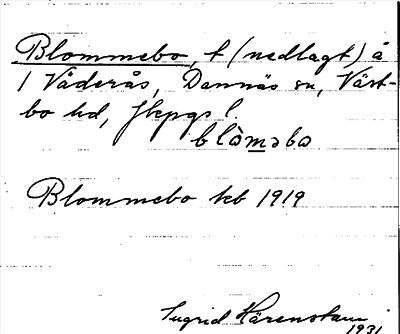 Blommebo, t (nedlagt) å
1 Våderås, Dannäs sn, Väst-
bo hd, Jkpgs l.
blòməbo
Blommebo kb 1919
Ingrid Härenstam
1931